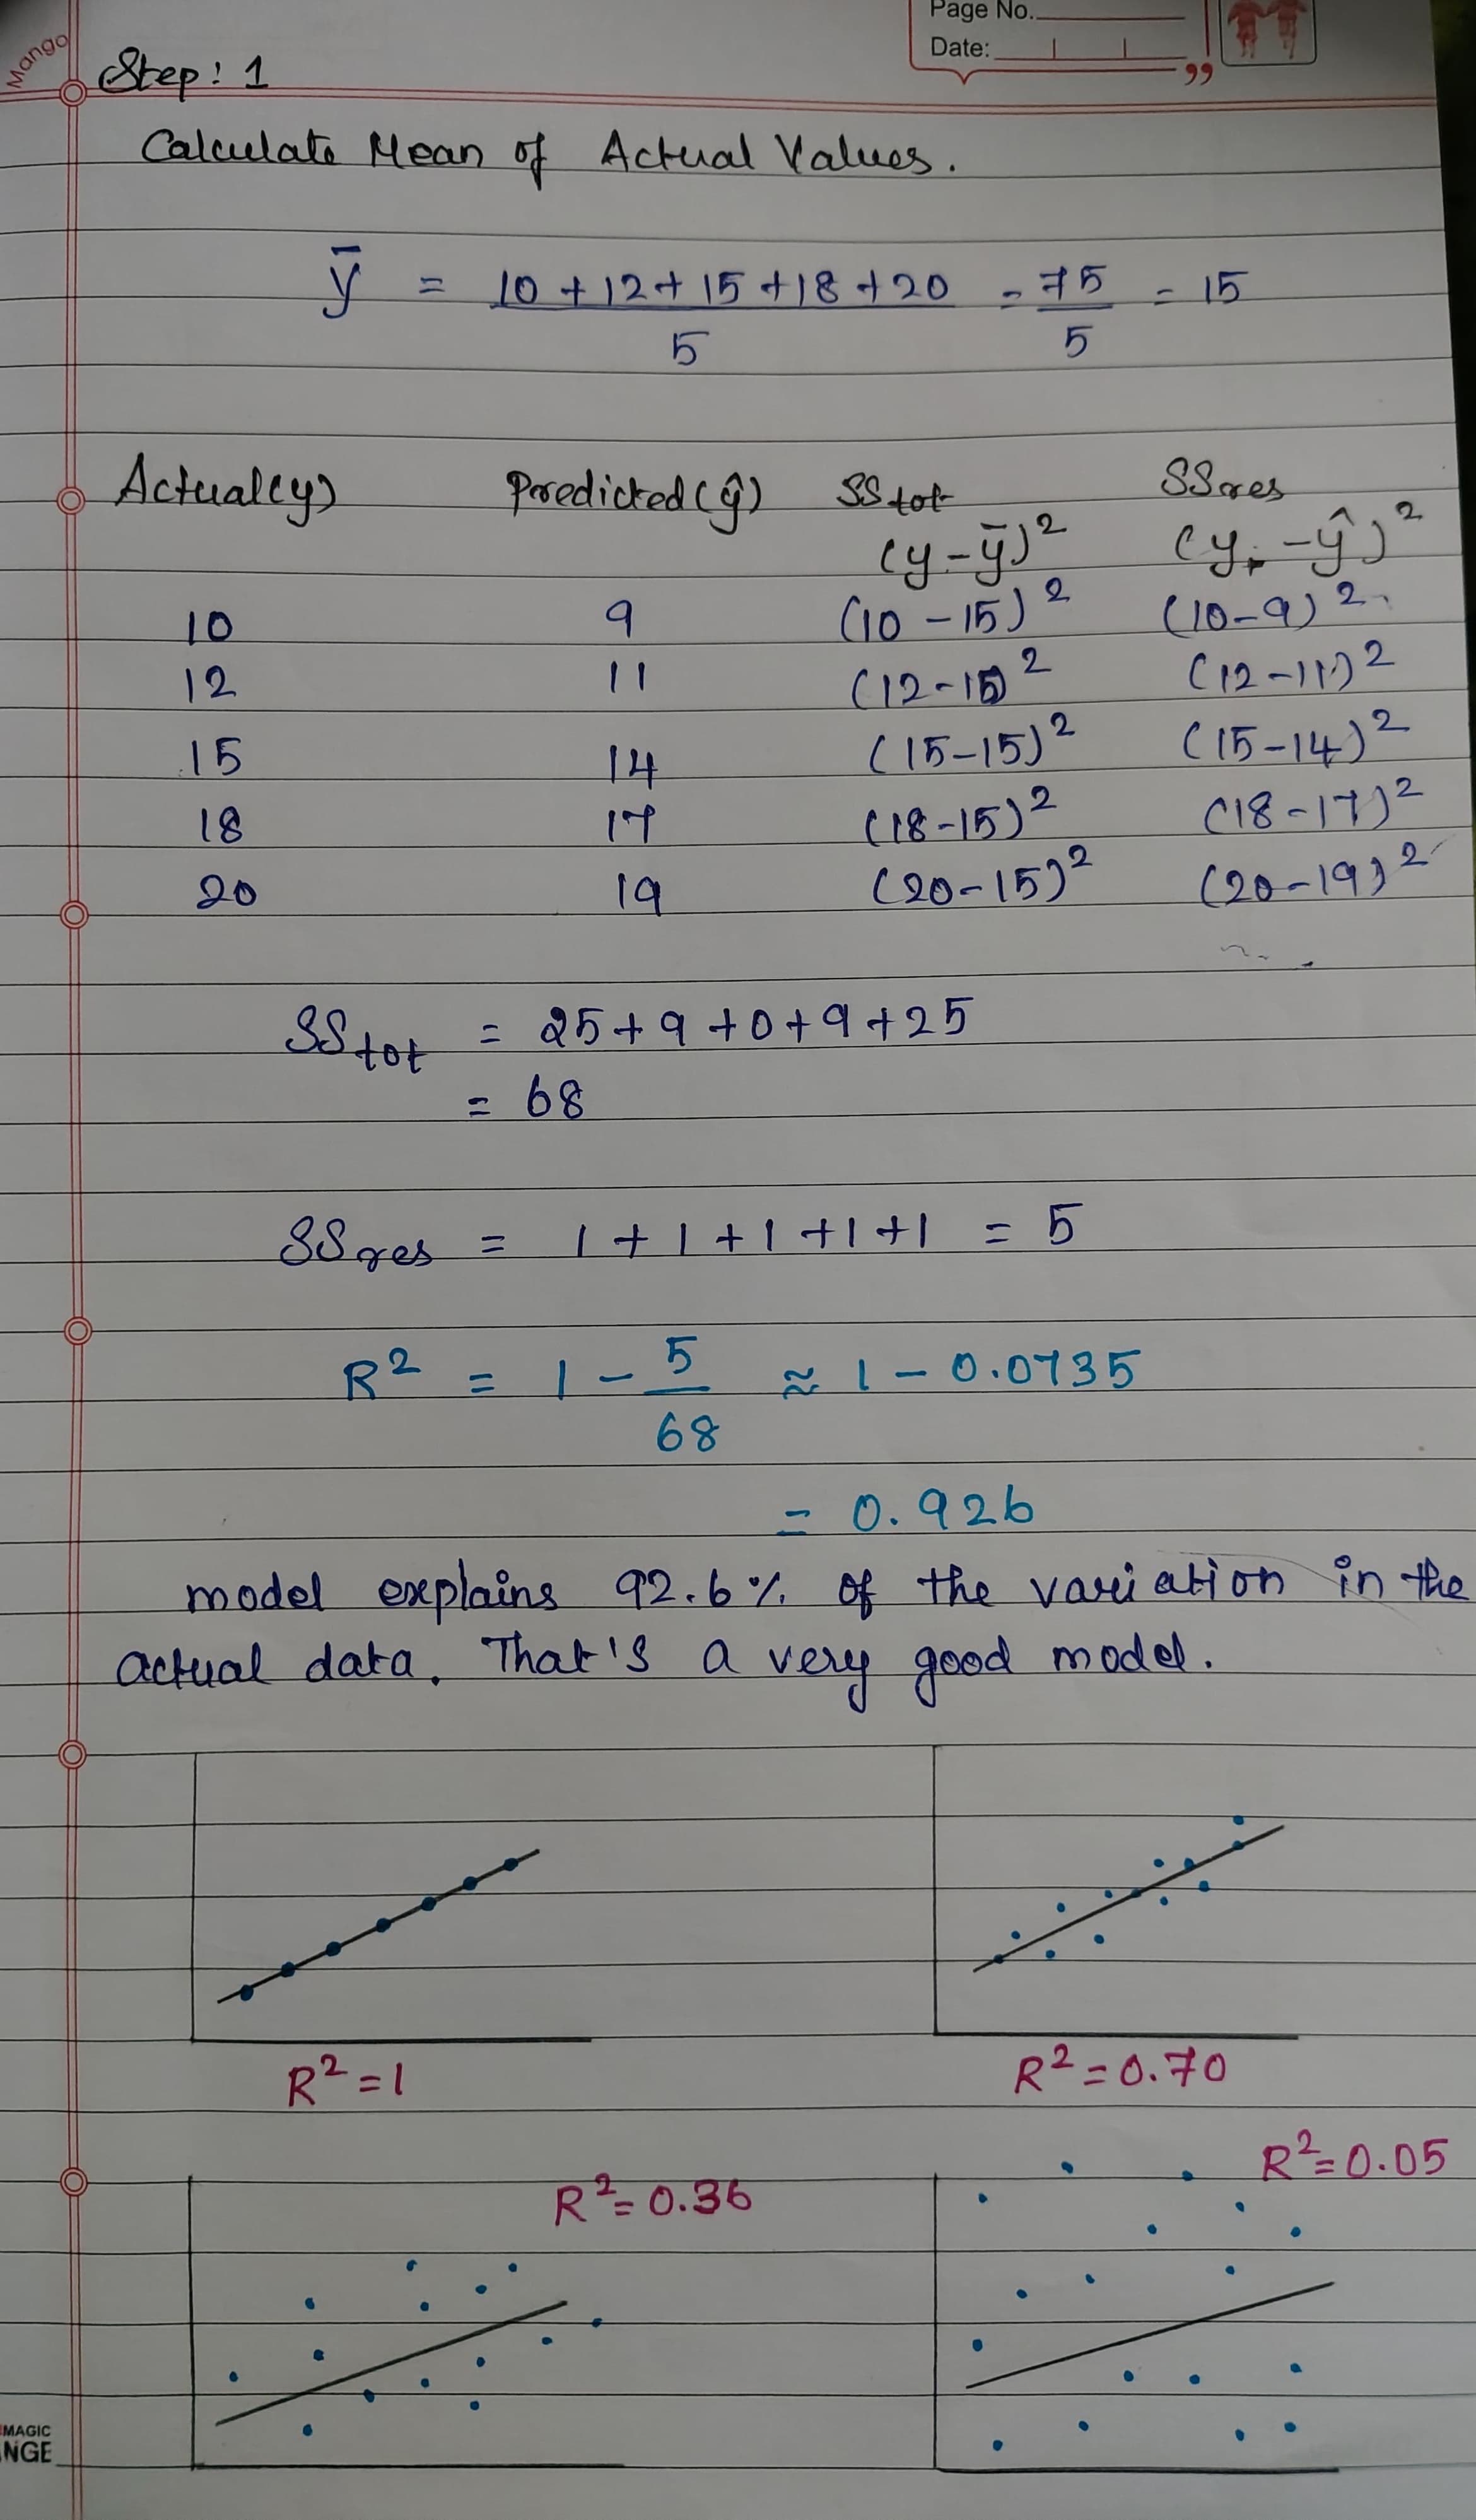 Mango
Page No.
Date:
Step: 1
Calculate Mean of Actual Values.
ȳ = 10 + 12 + 15 + 18 + 20 / 5 = 75 / 5 = 15
Actual(y) Predicted(ŷ) SS tot SS res
(y - ȳ)² (y. - ŷ)²
10 9 (10 - 15)² (10 - 9)²
12 11 (12 - 15)² (12 - 11)²
15 14 (15 - 15)² (15 - 14)²
18 17 (18 - 15)² (18 - 17)²
20 19 (20 - 15)² (20 - 19)²
SS tot = 25 + 9 + 0 + 9 + 25
= 68
SS res = 1 + 1 + 1 + 1 + 1 = 5
R² = 1 - 5 / 68 ≈ 1 - 0.0735
= 0.926
model explains 92.6% of the variation in the
actual data. That's a very good model.
R² = 1 R² = 0.70
R² = 0.36 R² = 0.05
MAGIC
NGE